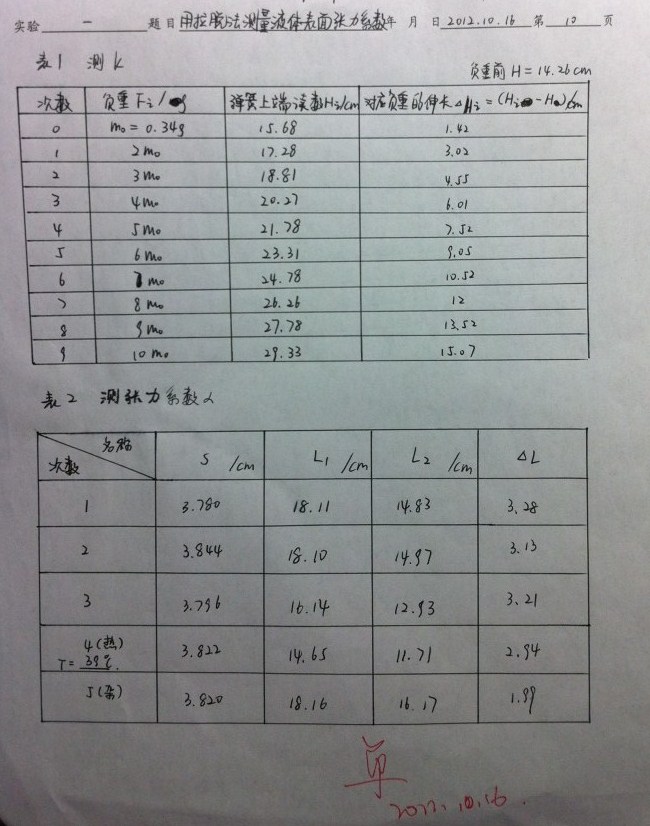 实验 一 题目 用拉脱法测量液体表面张力系数 年 月 日 2012.10.16 第 10 页
表1 测K
负重前 H = 14.26cm
次数 负重 Fi / g 弹簧上端读数Hi/cm 对应负重的伸长△Hi = (Hi - H0)/cm
0 m0 = 0.34g 15.68 1.42
1 2m0 17.28 3.02
2 3m0 18.81 4.55
3 4m0 20.27 6.01
4 5m0 21.78 7.52
5 6m0 23.31 9.05
6 7m0 24.78 10.52
7 8m0 26.26 12
8 9m0 27.78 13.52
9 10m0 29.33 15.07
表2 测张力系数α
名称
次数 S /cm L1 /cm L2 /cm △L
1 3.780 18.11 14.83 3.28
2 3.844 18.10 14.97 3.13
3 3.796 16.14 12.93 3.21
4(热)
T= 39℃. 3.822 14.65 11.71 2.94
5(杂) 3.820 18.16 16.17 1.99
单
2012.10.16.